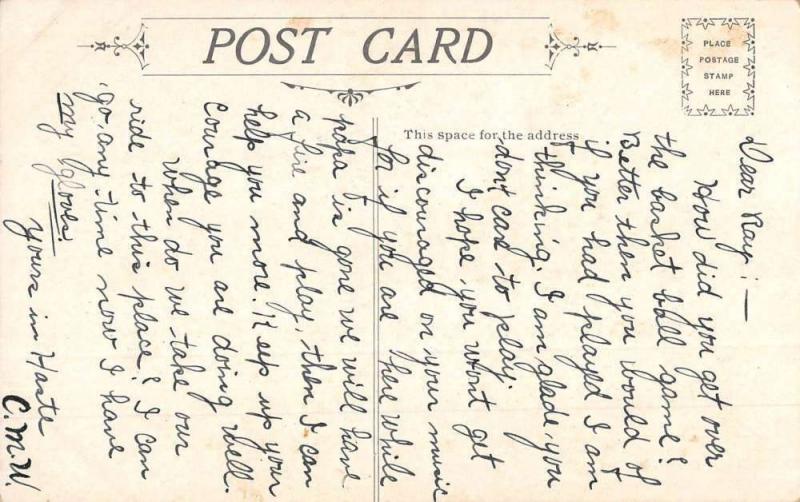 POST CARD
PLACE
POSTAGE
STAMP
HERE
This space for the address
Dear Ray:—
How did you get over
the basket ball game?
Better then you would of
if you had played I am
thinking. I am glade, you
don't care to play.
I hope you won't get
discouraged on your music
for if you are here while
papa is gone we will have
a fire and play, then I can
help you more. Keep up your
courage you are doing well.
When do we take our
ride to this place? I can
go, any time now I have
my gloves.
Yours in Haste
C.M.W.